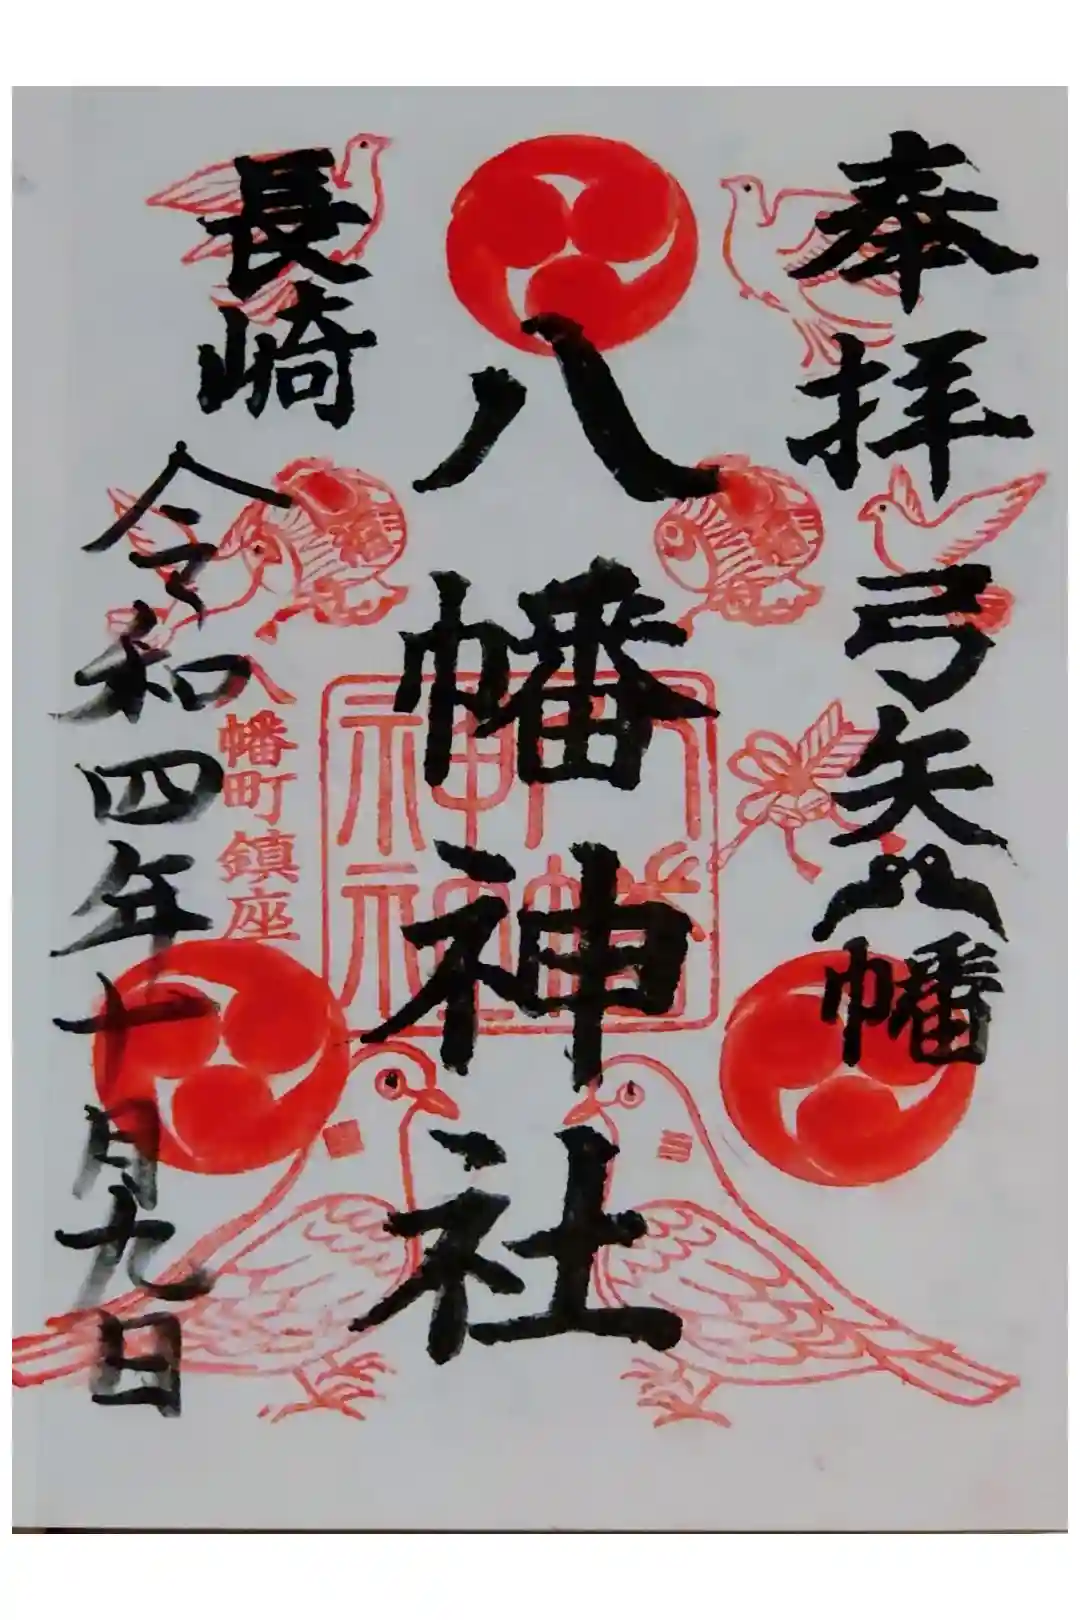 奉拝
弓矢八幡
八幡神社
長崎
八幡町鎮座
令和四年十月九日